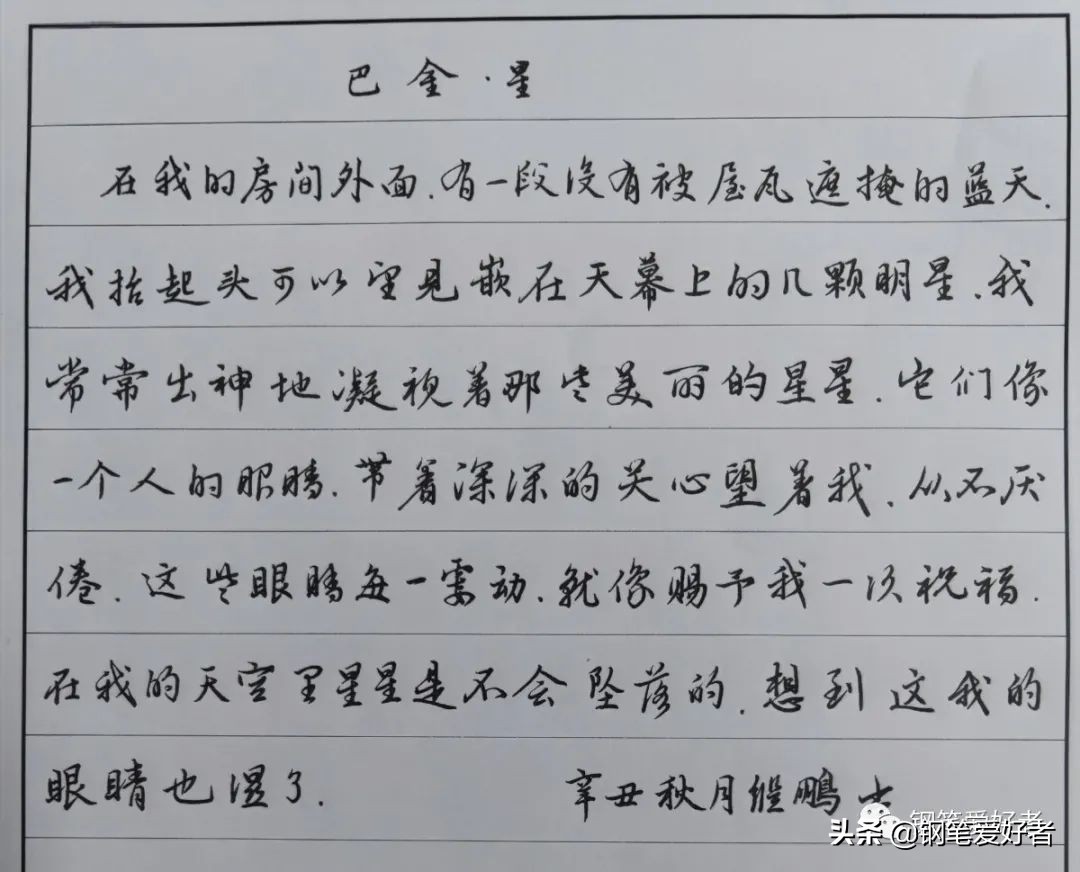 巴金·星
在我的房间外面.有一段没有被屋瓦遮掩的蓝天.
我抬起头可以望见嵌在天幕上的几颗明星.我
常常出神地凝视着那些美丽的星星.它们像
一个人的眼睛.带着深深的关心望着我.从不厌
倦.这些眼睛每一霎动.就像赐予我一次祝福.
在我的天空里星星是不会坠落的.想到这我的
眼睛也湿了.
辛丑秋月继鹏书
钢笔爱好者
头条@钢笔爱好者